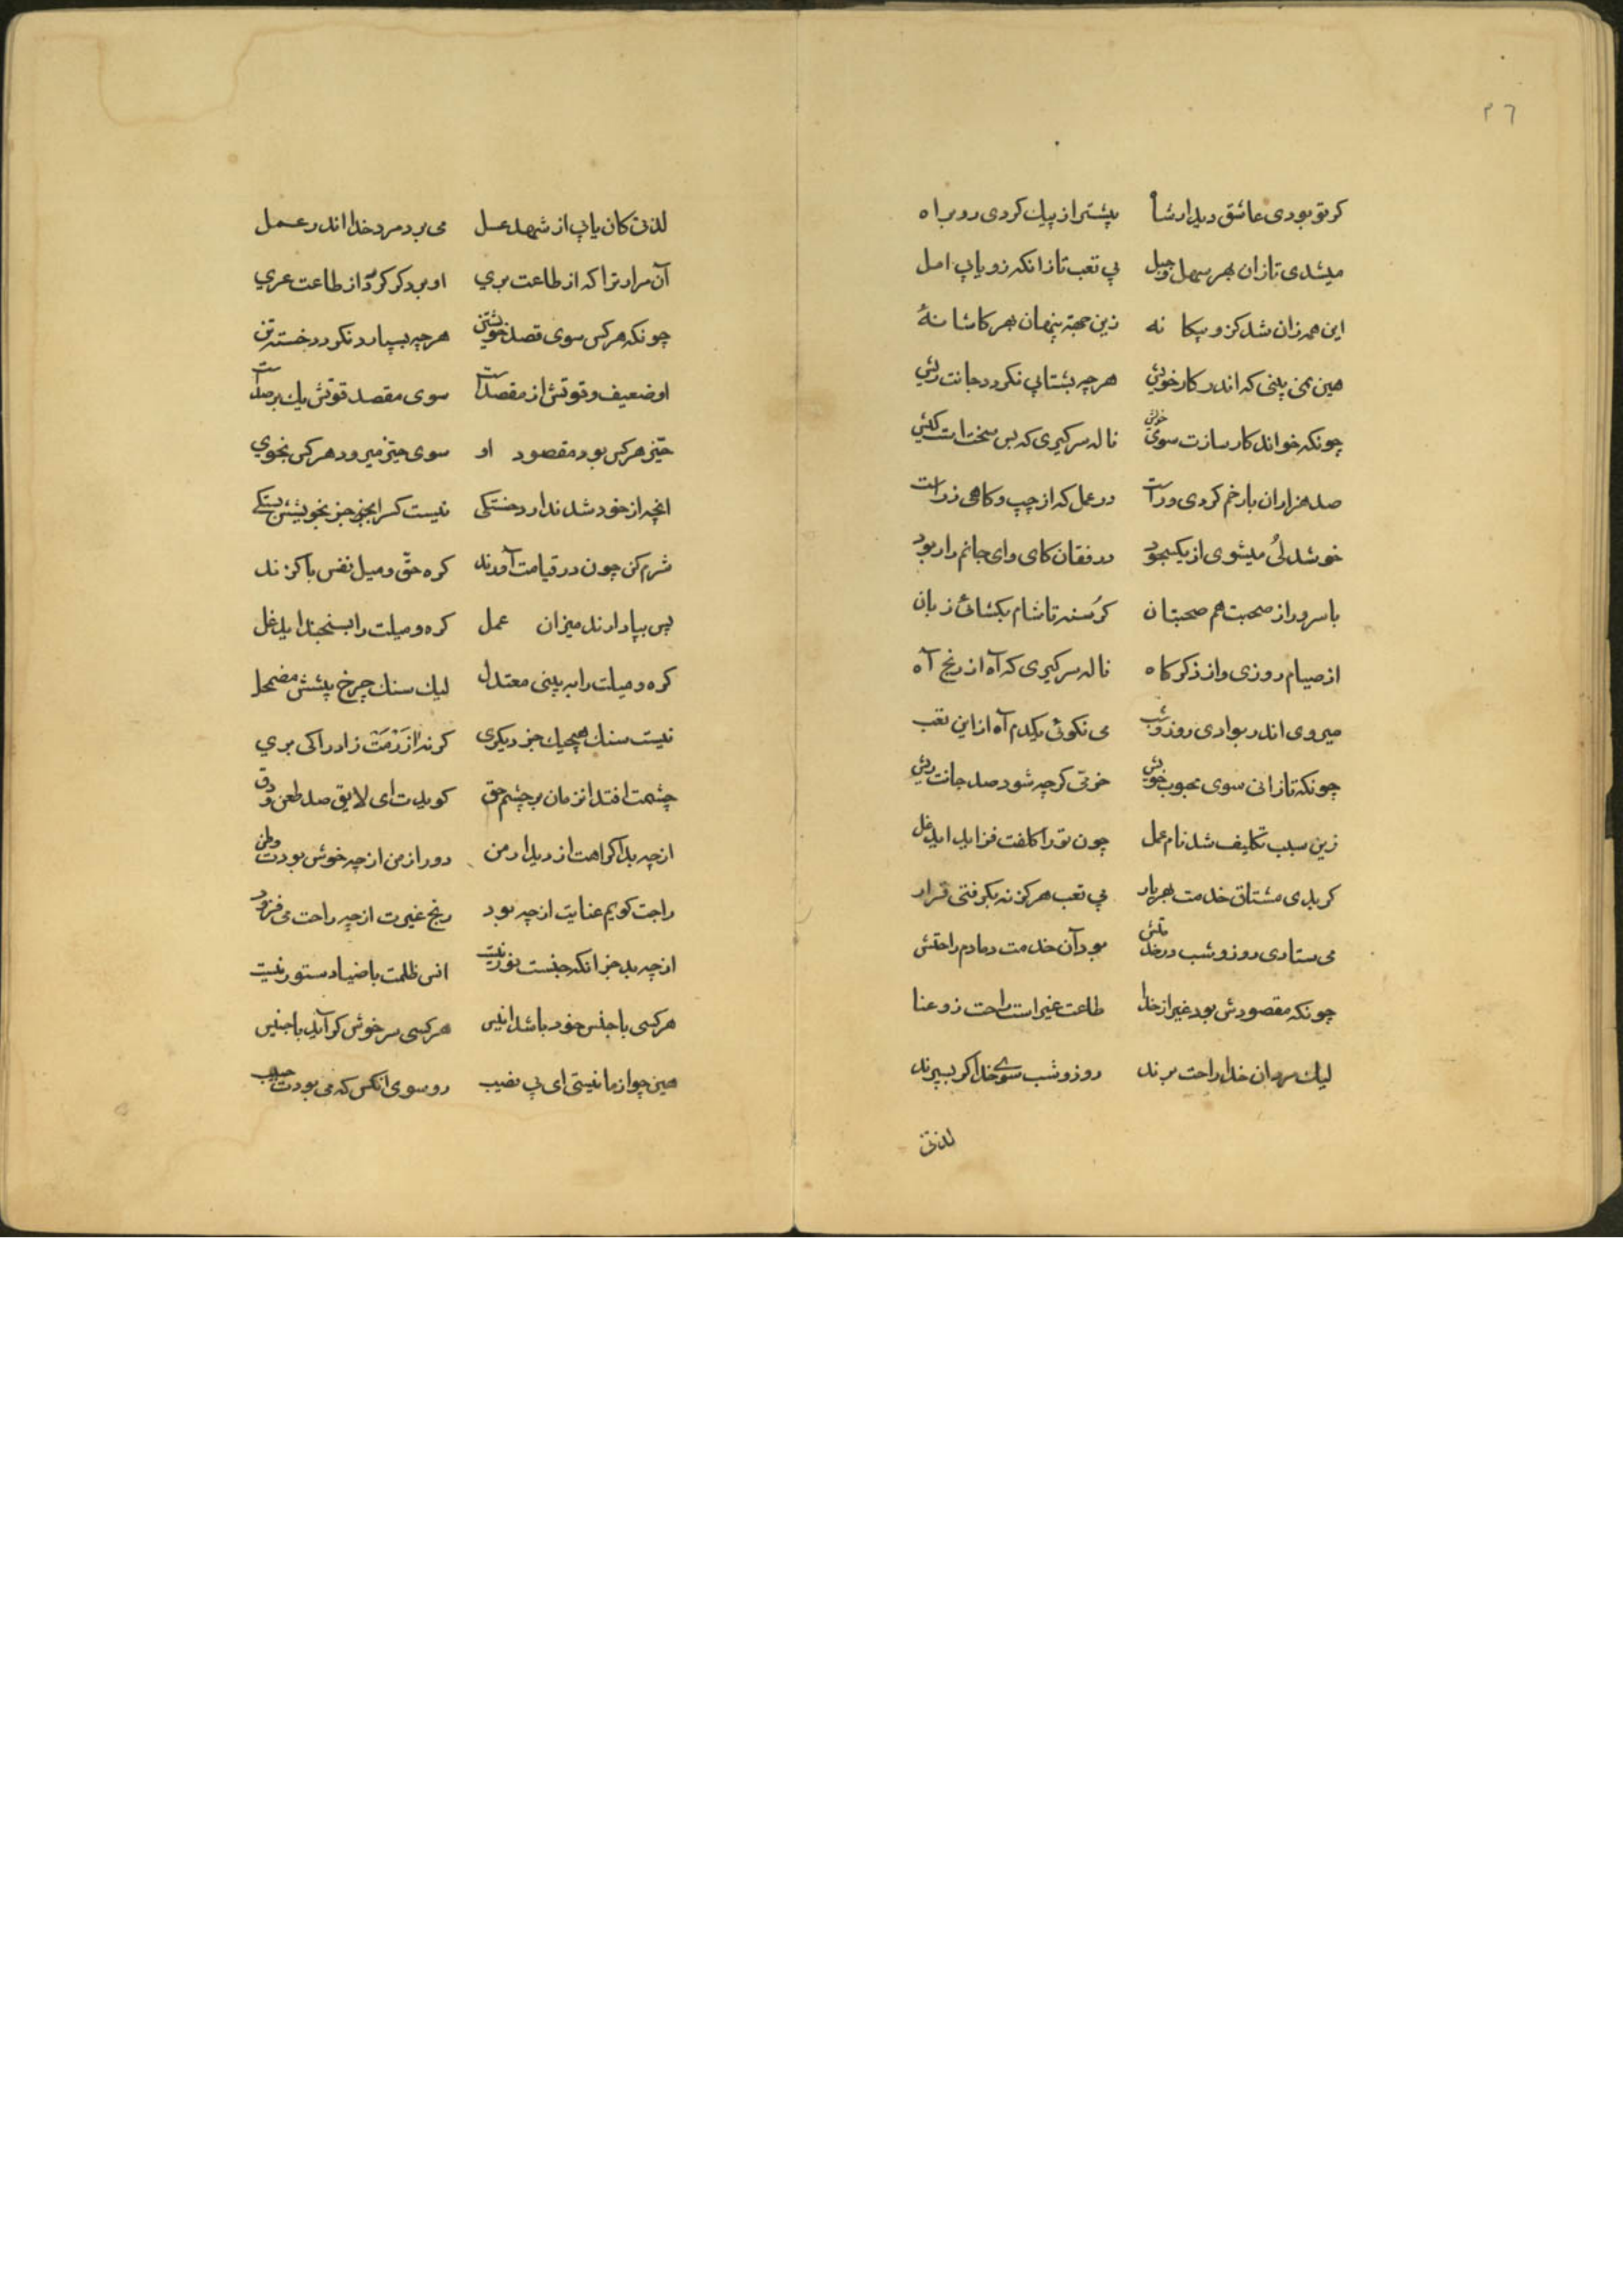 ٢٦
کر تو بودی عاشق دیدار شاه پیشتر از پیك کردی رو براه
میشدی تازان بهر سهل و جبل بی تعب تازانکه زو یابی امل
این همه زان شد کزو بیکا نه زین جهة پنهان بهر کاشا نۀ
هین نمی بینی که اندر کار خویش هرچه بشتابی نکردد جانت ریش
چونکه خواند کارسازت سوی خویش ناله سر کیری که بس سخت است
صد هزاران بار خم کردی و راست در عمل که از چپ و کاهی ز راست
خوشدلی میشوی از یکجو در فغان کای وای جانم
با سرور از صحبت هم صحبتان کرسنه تا شام بکشائی زبان
از صیام روزی و از ذکر کاه ناله سر کیری که آه از رنج آه
میروی اندر بوادی روز و شب می نکوئی یکدم آه از این تعب
چونکه تازانی سوی محبوب خویش خرّمی کرچه شود صد جانت ریش
زین سبب تکلیف شد نام عمل چون تو را کلفت فزاید ای دغل
کر بدی مشتاق خدمت بهر یار بی تعب هرکز نه بکرفتی قرار
می ستادی روز و شب در خدمتش بود آن خدمت دمادم راحتش
چونکه مقصودش بود غیر از خدا طاعت غیر است راحت زو عنا
لیك مردان خدا راحت برند روز و شب سوی خدا کر بسپرند
لذتی
لذتی کان یابی از شهد عسل می برد مرد خدا اندر عمل
آن مراد ترا که از طاعت بری او برد کر کردد از طاعت عری
چونکه هرکس سوی قصد خویشتن هرچه بسپارد نکردد خسته تن
او ضعیف و قوتش از مقصد است سوی مقصد قوتش یك بر صد است
حیّز هرکس بود مقصود او سوی حیّز میرود هرکس بخوی
انچه از خود شد ندارد خستکی نیست کس را بخود جز بخویشش بستکی
شرم کن چون در قیامت آورند کره حقّ و میل نفس
پس بپا دارند میزان عمل کره و میلت را بسنجند ای دغل
کره و میلت را به بینی معتدل لیك سنك چرخ پیشش مضمحل
نیست سنك هیچیك جز دیکری کر نه آزرمت زاد را کی بری
چشمت افتد انزمان بر چشم حق کویدت ای لایق صد طعن و دق
از چه بد اکراهت از دیدار من دور از من از چه خوش بودت وطن
راحت کویم عنایت از چه بود رنج غیرت از چه راحت می فزود
از چه بد جز انکه جنست نور نیست انس ظلمت با ضیا دستور نیست
هرکسی با جنس خود باشد انیس هرکسی سرخوش کر آید با جنیس
هین چو از ما نیستی ای بی نصیب رو سوی انکس که می بودت حبیب